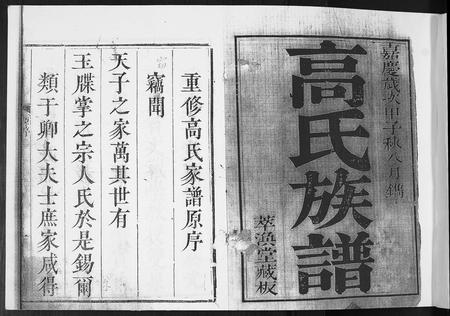 嘉慶歲次甲子秋八月鐫
高氏族譜
萃渙堂藏板
重修高氏家譜原序
竊聞
天子之家萬其世有
玉牒掌之宗人氏於是錫爾
類于卿大夫士庶家咸得